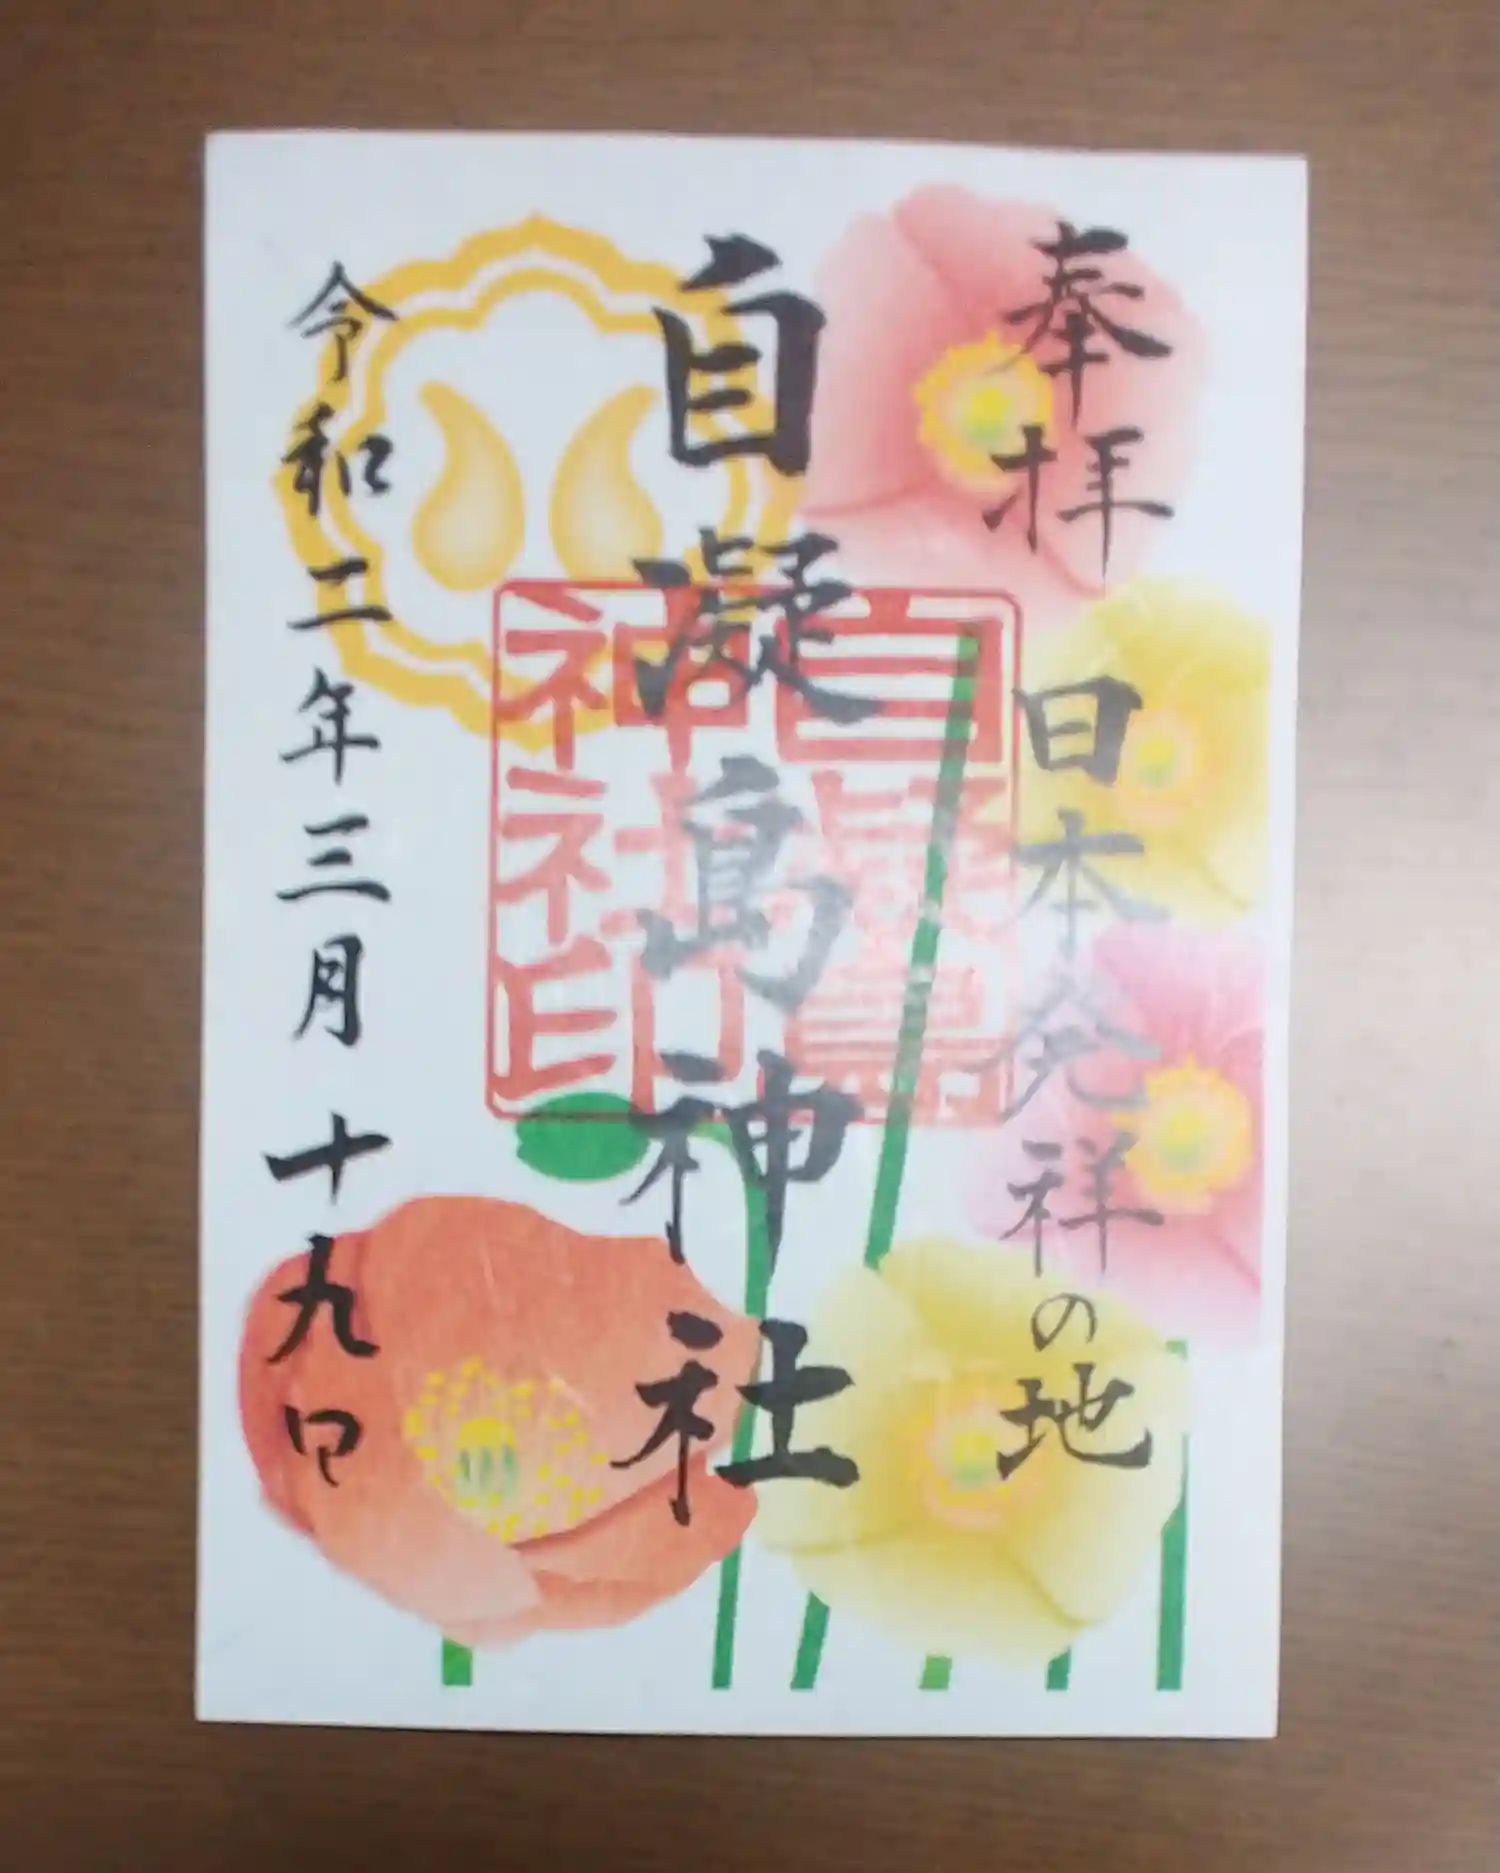 奉拝 日本発祥の地
自凝島神社
令和二年三月十九日
自凝島
神社印